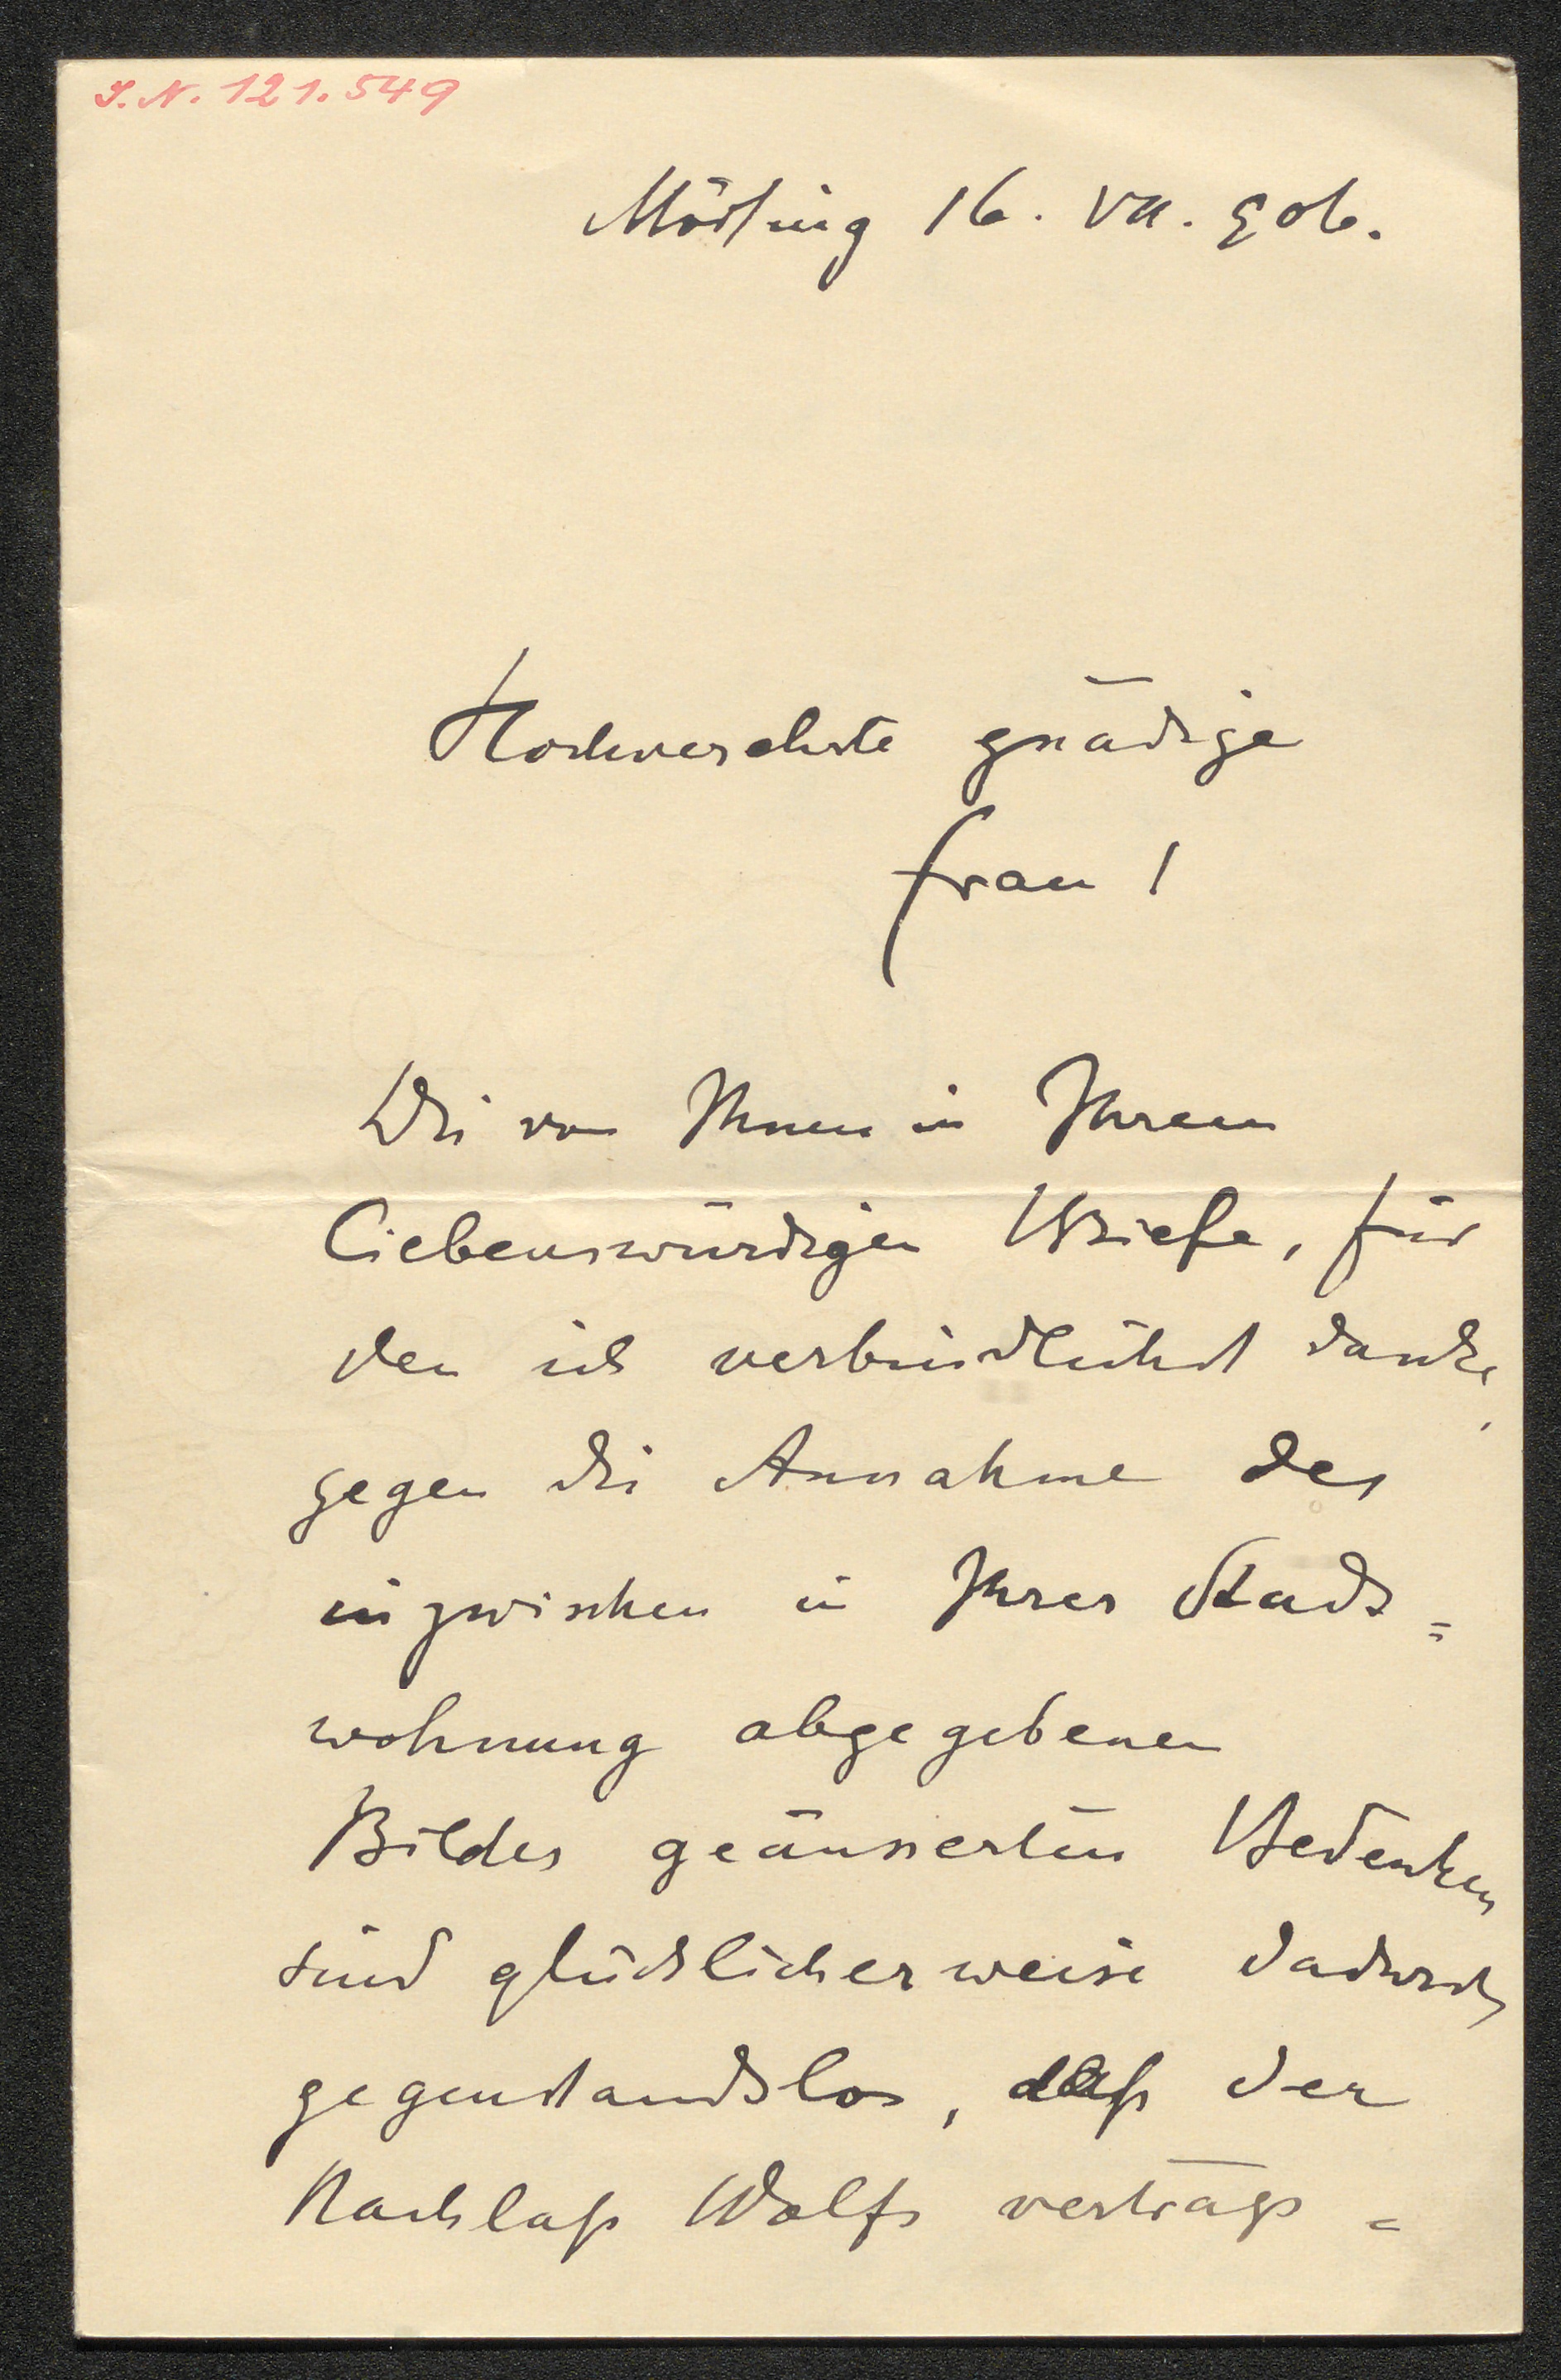 I. N. 121.549
Mödling 16. VII. 906.
Hochverehrte gnädige
Frau!
Die von Ihnen in Ihrem
liebenswürdigen Briefe, für
den ich verbindlichst danke,
gegen die Annahme des
inzwischen in Ihrer Stadt=
wohnung abgegebenen
Bildes geäusserten Bedenken
sind glücklicherweise dadurch
gegenstandslos, daß der
Nachlaß Wolfs vertrags=